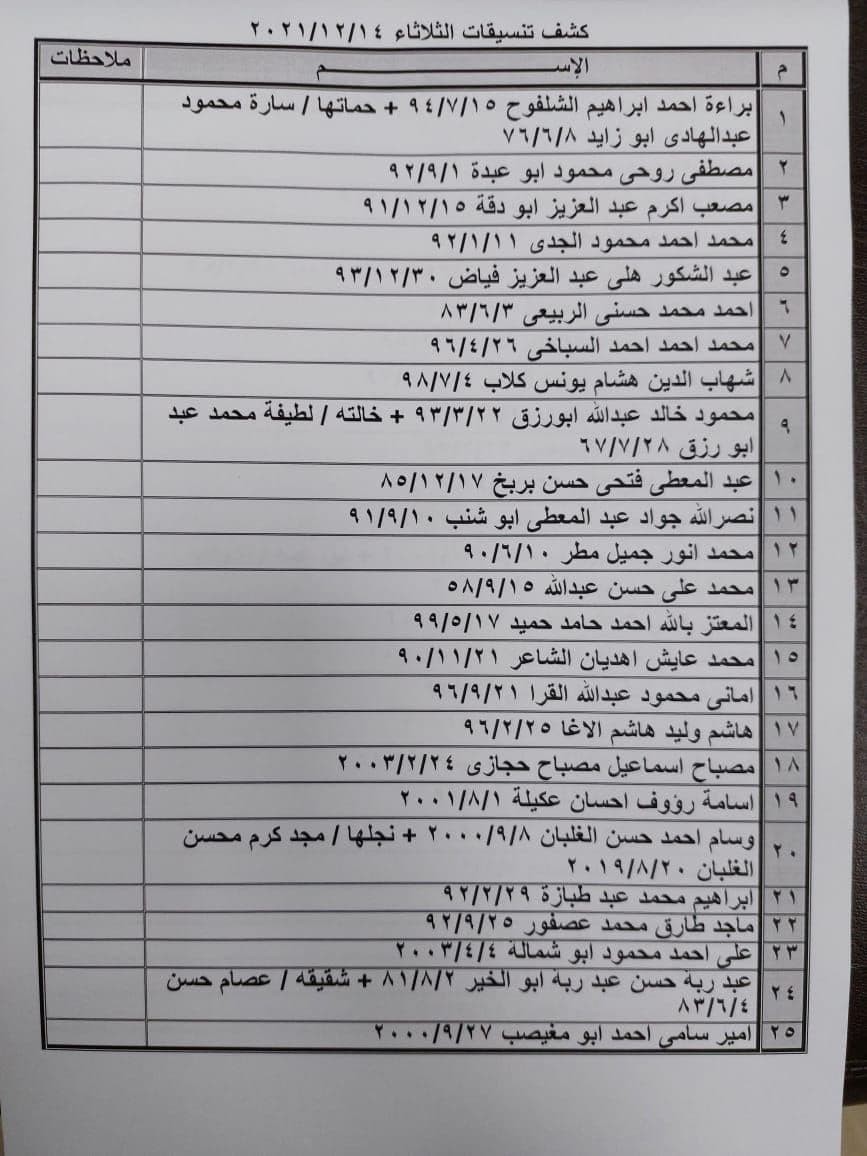 كشف تنسيقات الثلاثاء ٢٠٢١/١٢/١٤
م الإســـــــــــــم ملاحظات
١ براءة احمد ابراهيم الشلفوح ٩٤/٧/١٥ + حماتها / سارة محمود
عبدالهادى ابو زايد ٧٦/٦/٨
٢ مصطفى روحى محمود ابو عبدة ٩٢/٩/١
٣ مصعب اكرم عبد العزيز ابو دقة ٩١/١٢/١٥
٤ محمد احمد محمود الجدى ٩٢/١/١١
٥ عبد الشكور هلى عبد العزيز فياض ٩٣/١٢/٣٠
٦ احمد محمد حسنى الربيعى ٨٣/٦/٣
٧ محمد احمد احمد السباخى ٩٦/٤/٢٦
٨ شهاب الدين هشام يونس كلاب ٩٨/٧/٤
٩ محمود خالد عبدالله ابورزق ٩٣/٣/٢٢ + خالته / لطيفة محمد عبد
ابو رزق ٦٧/٧/٢٨
١٠ عبد المعطى فتحى حسن بربخ ٨٥/١٢/١٧
١١ نصرالله جواد عبد المعطى ابو شنب ٩١/٩/١٠
١٢ محمد انور جميل مطر ٩٠/٦/١٠
١٣ محمد على حسن عبدالله ٥٨/٩/١٥
١٤ المعتز بالله احمد حامد حميد ٩٩/٥/١٧
١٥ محمد عايش اهديان الشاعر ٩٠/١١/٢١
١٦ امانى محمود عبدالله القرا ٩٦/٩/٢١
١٧ هاشم وليد هاشم الاغا ٩٦/٢/٢٥
١٨ مصباح اسماعيل مصباح حجازى ٢٠٠٣/٢/٢٤
١٩ اسامة رؤوف احسان عكيلة ٢٠٠١/٨/١
٢٠ وسام احمد حسن الغلبان ٢٠٠٠/٩/٨ + نجلها / مجد كرم محسن
الغلبان ٢٠١٩/٨/٢٠
٢١ ابراهيم محمد عبد طبازة ٩٢/٢/٢٩
٢٢ ماجد طارق محمد عصفور ٩٢/٩/٢٥
٢٣ على احمد محمود ابو شمالة ٢٠٠٣/٤/٤
٢٤ عبد ربة حسن عبد ربة ابو الخير ٨١/٨/٢ + شقيقه / عصام حسن
٨٣/٦/٤
٢٥ امير سامى احمد ابو مغيصب ٢٠٠٠/٩/٢٧